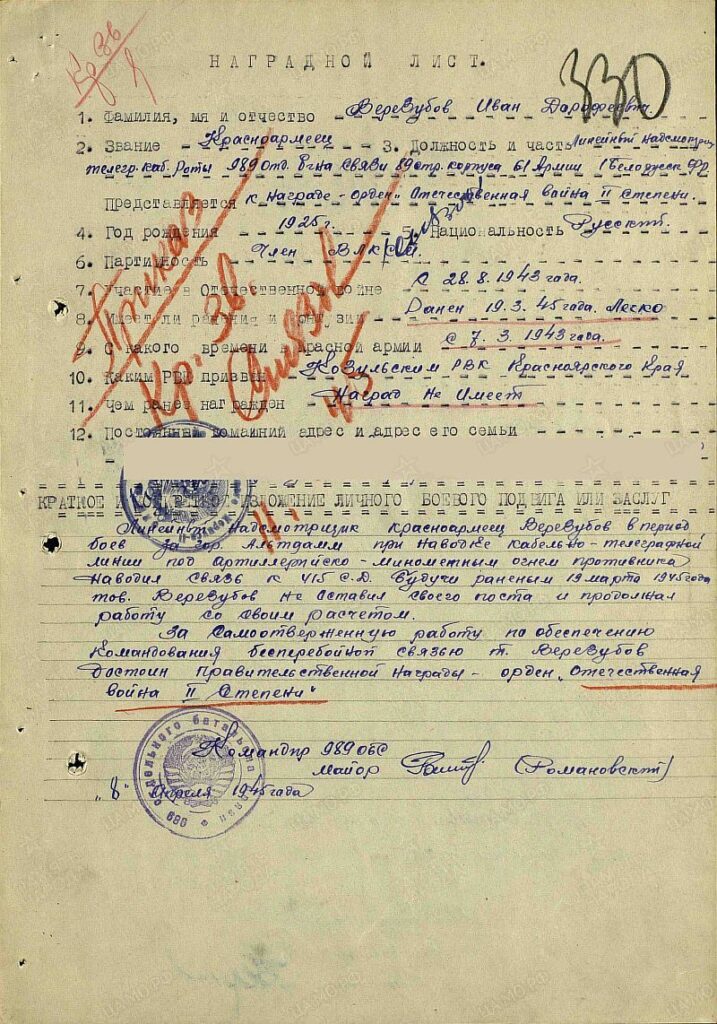 Кр. Зв
330
НАГРАДНОЙ ЛИСТ.
1. Фамилия, мя и отчество Верезубов Иван Дарафеевич
2. Звание - Красноармеец - 3. Должность и часть Линейный надсмотрщик
телегр. каб. Роты 989 отд. б-на связи 89 стр. корпуса 61 Армии 1 Белорусск. Фр
Представляется к награде - орден "Отечественная война II степени.
4. Год рождения 1925 г. 5. Национальность Русский.
6. Партийность Член ВЛКСМ
7. Участие в Отечественной войне с 28.8.1943 года.
8. Имеет ли ранения и контузии Ранен 19.3.45 года. Легко
9. С какого времени в Красной армии с 7.3.1943 года.
10. Каким РВК призван Козульским РВК Красноярского Края
11. Чем ранее награжден Наград не имеет
12. Постоянный домашний адрес и адрес его семьи
Приказ
Кр. Зв.
КРАТКОЕ ИЗЛОЖЕНИЕ ЛИЧНОГО БОЕВОГО ПОДВИГА ИЛИ ЗАСЛУГ
Линейный надсмотрщик красноармеец Верезубов в период
боев за гор. Альтдамм при наводке кабельно-телеграфной
линии под артиллерийско-минометным огнем противника
наводил связь к 415 С.Д. Будучи раненым 19 марта 1945 года
тов. Верезубов не оставил своего поста и продолжал
работу со своим расчетом.
За самоотверженную работу по обеспечению
командования бесперебойной связью т. Верезубов
достоин Правительственной награды - орден "Отечественная
война II степени"
Командир 989 ОБС
майор (Романовский)
"8" Апреля 1945 года
отдельного батальона связи 989